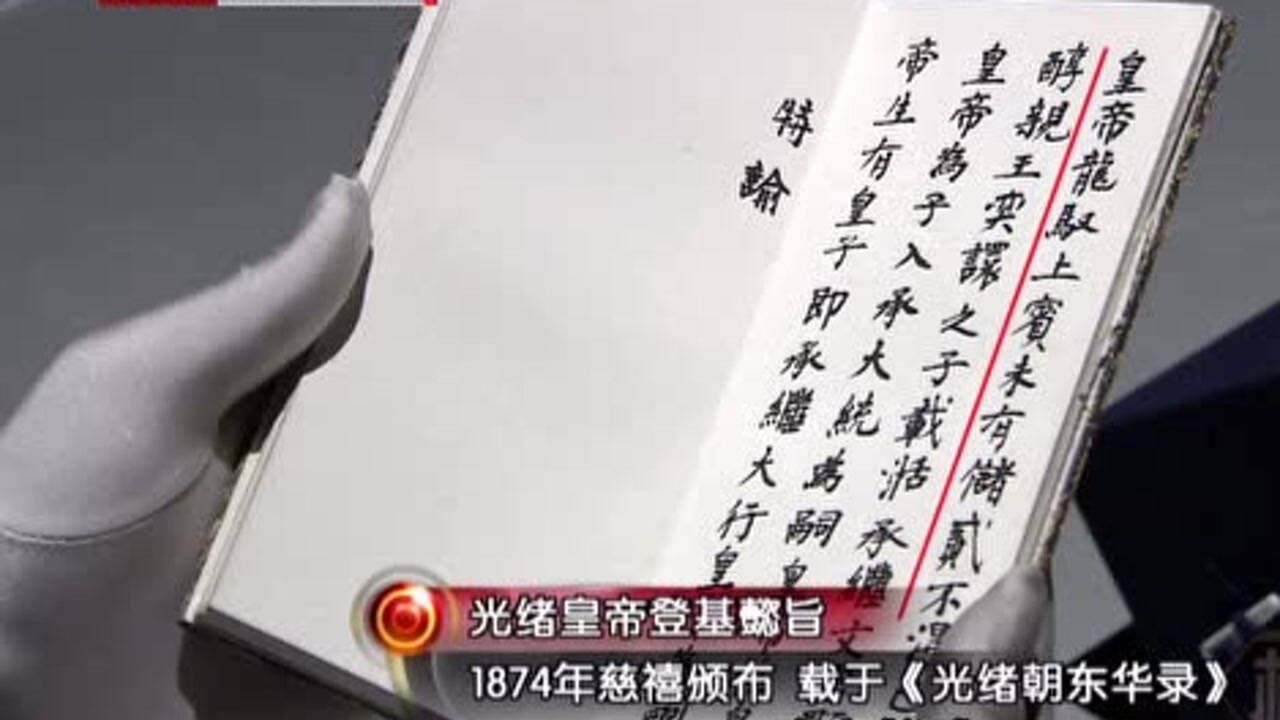 皇帝龍馭上賓未有儲貳不
醇親王奕譞之子載湉承繼文
皇帝為子入承大統為嗣皇
帝生有皇子即承繼大行皇
特諭
光绪皇帝登基懿旨
1874年慈禧颁布 载于《光绪朝东华录》